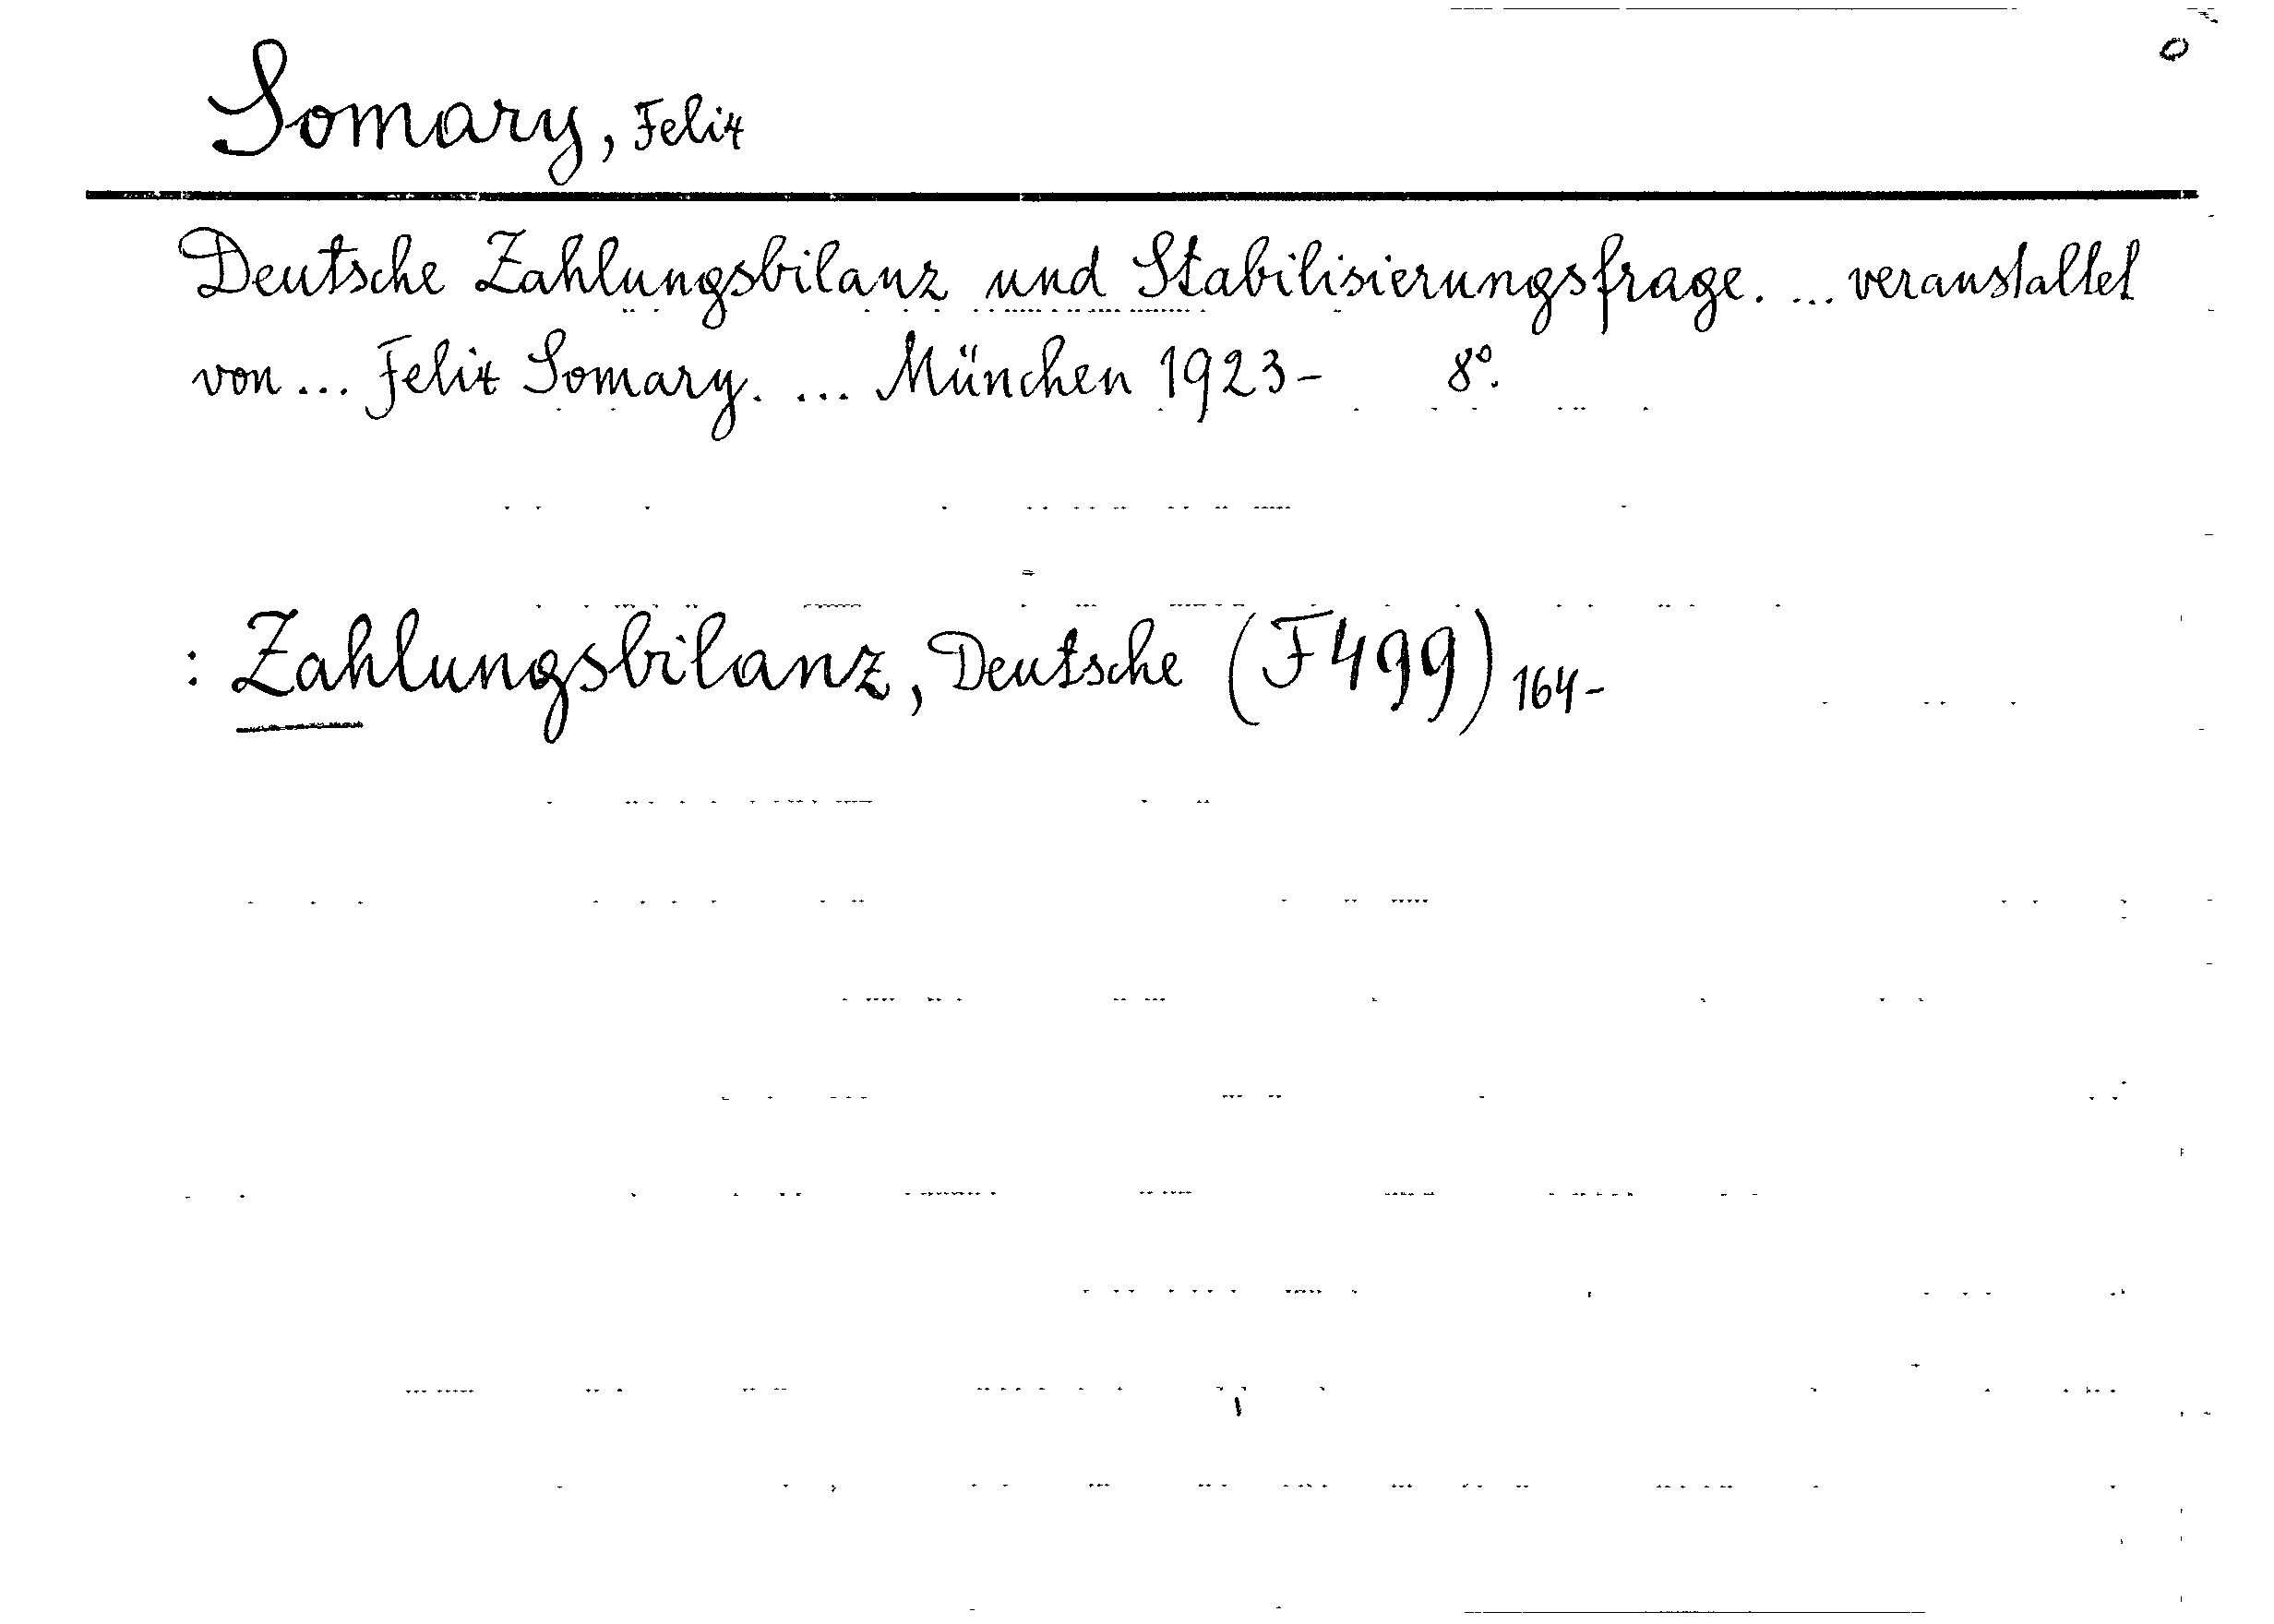 Somary, Felix
Deutsche Zahlungsbilanz und Stabilisierungsfrage. ... veranstaltet
von ... Felix Somary. ... München 1923- 8º.
: Zahlungsbilanz, Deutsche (F499) 164-